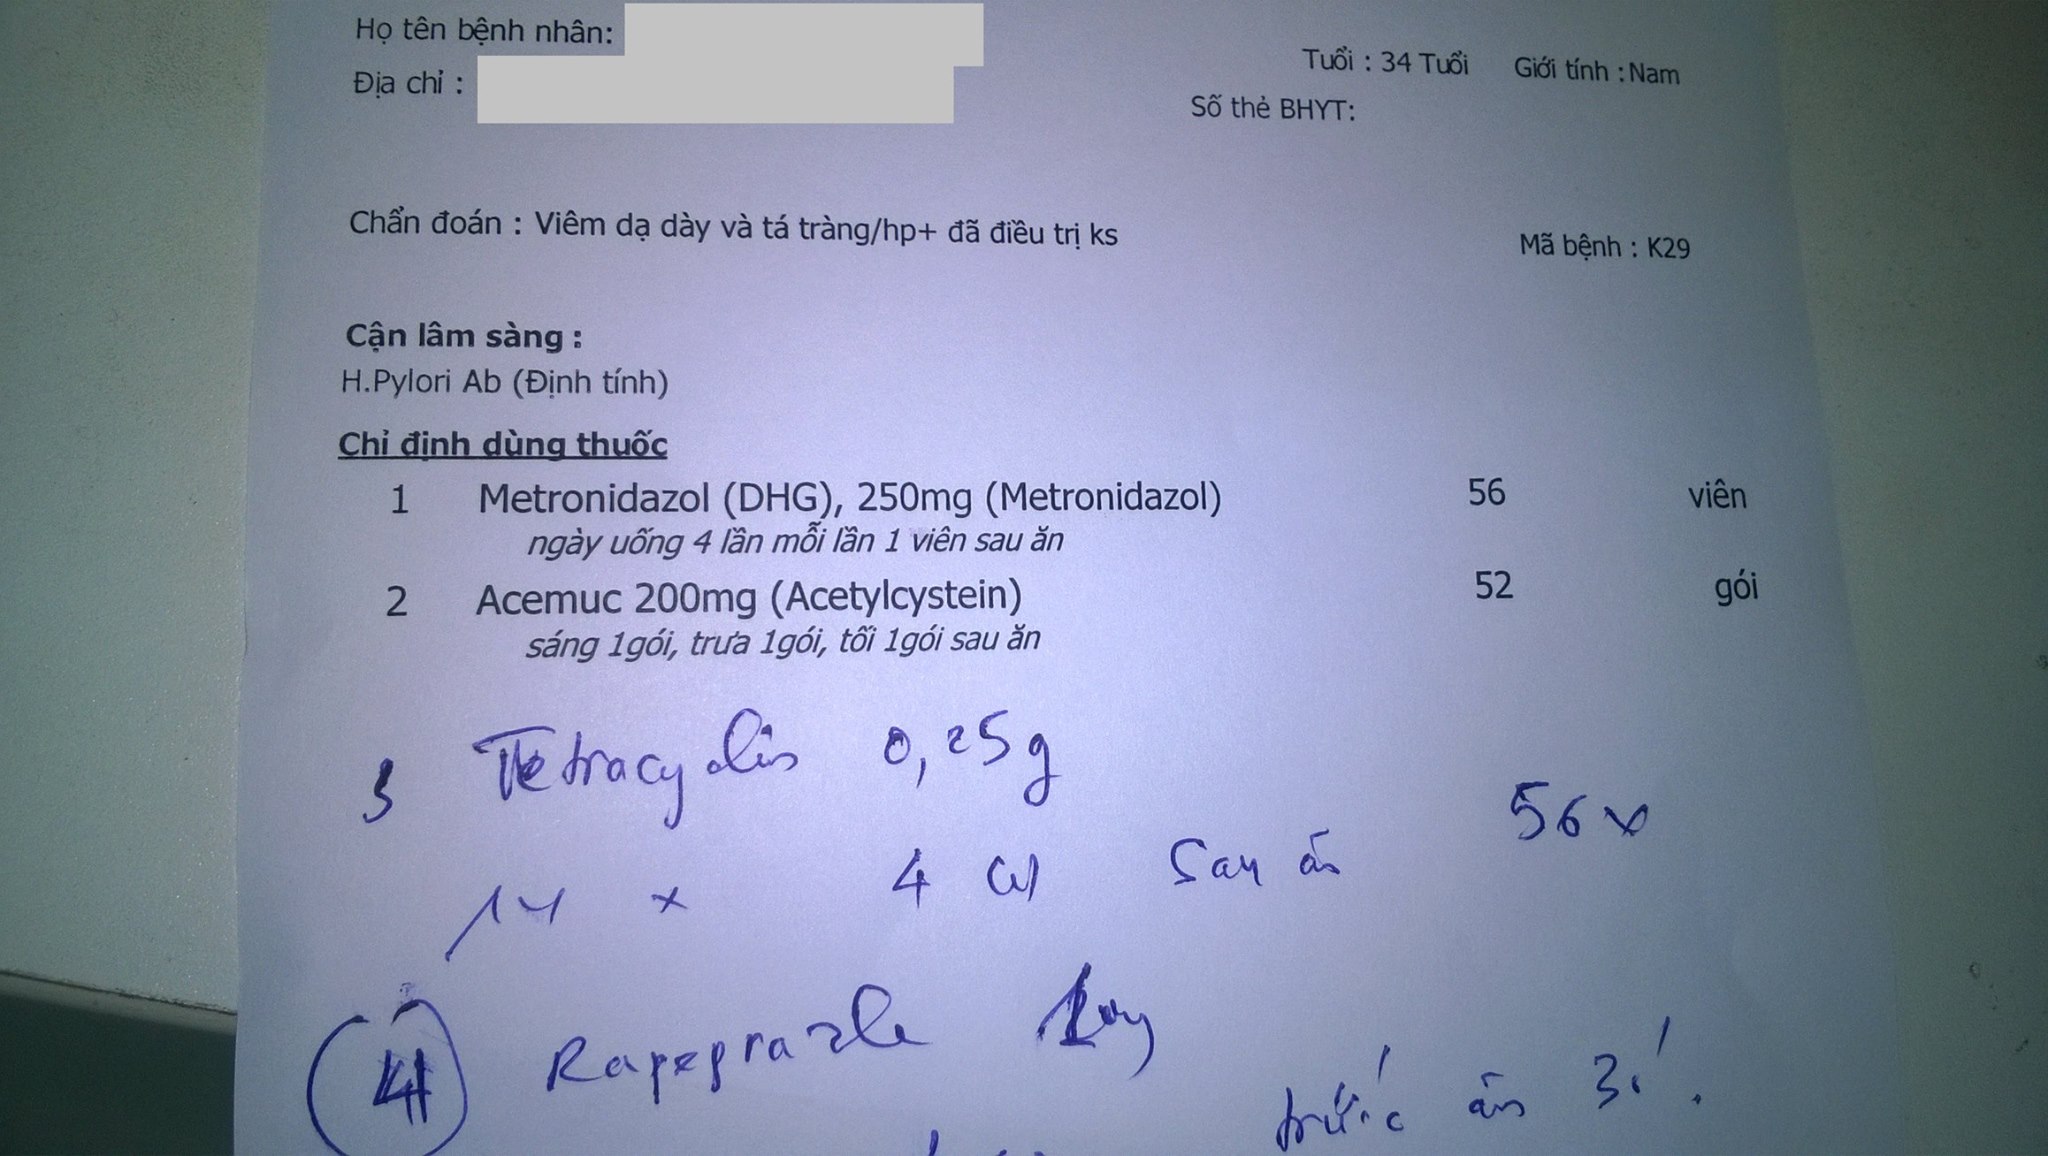 Họ tên bệnh nhân:
Tuổi : 34 Tuổi Giới tính :Nam
Địa chỉ :
Số thẻ BHYT:
Chẩn đoán : Viêm dạ dày và tá tràng/hp+ đã điều trị ks
Mã bệnh : K29
Cận lâm sàng :
H.Pylori Ab (Định tính)
Chỉ định dùng thuốc
1 Metronidazol (DHG), 250mg (Metronidazol) 56 viên
ngày uống 4 lần mỗi lần 1 viên sau ăn
2 Acemuc 200mg (Acetylcystein) 52 gói
sáng 1gói, trưa 1gói, tối 1gói sau ăn
3 Tetracyclin 0,25g
56
14 x 4 sau ăn
4 Rapeprazole
trước ăn 30'.